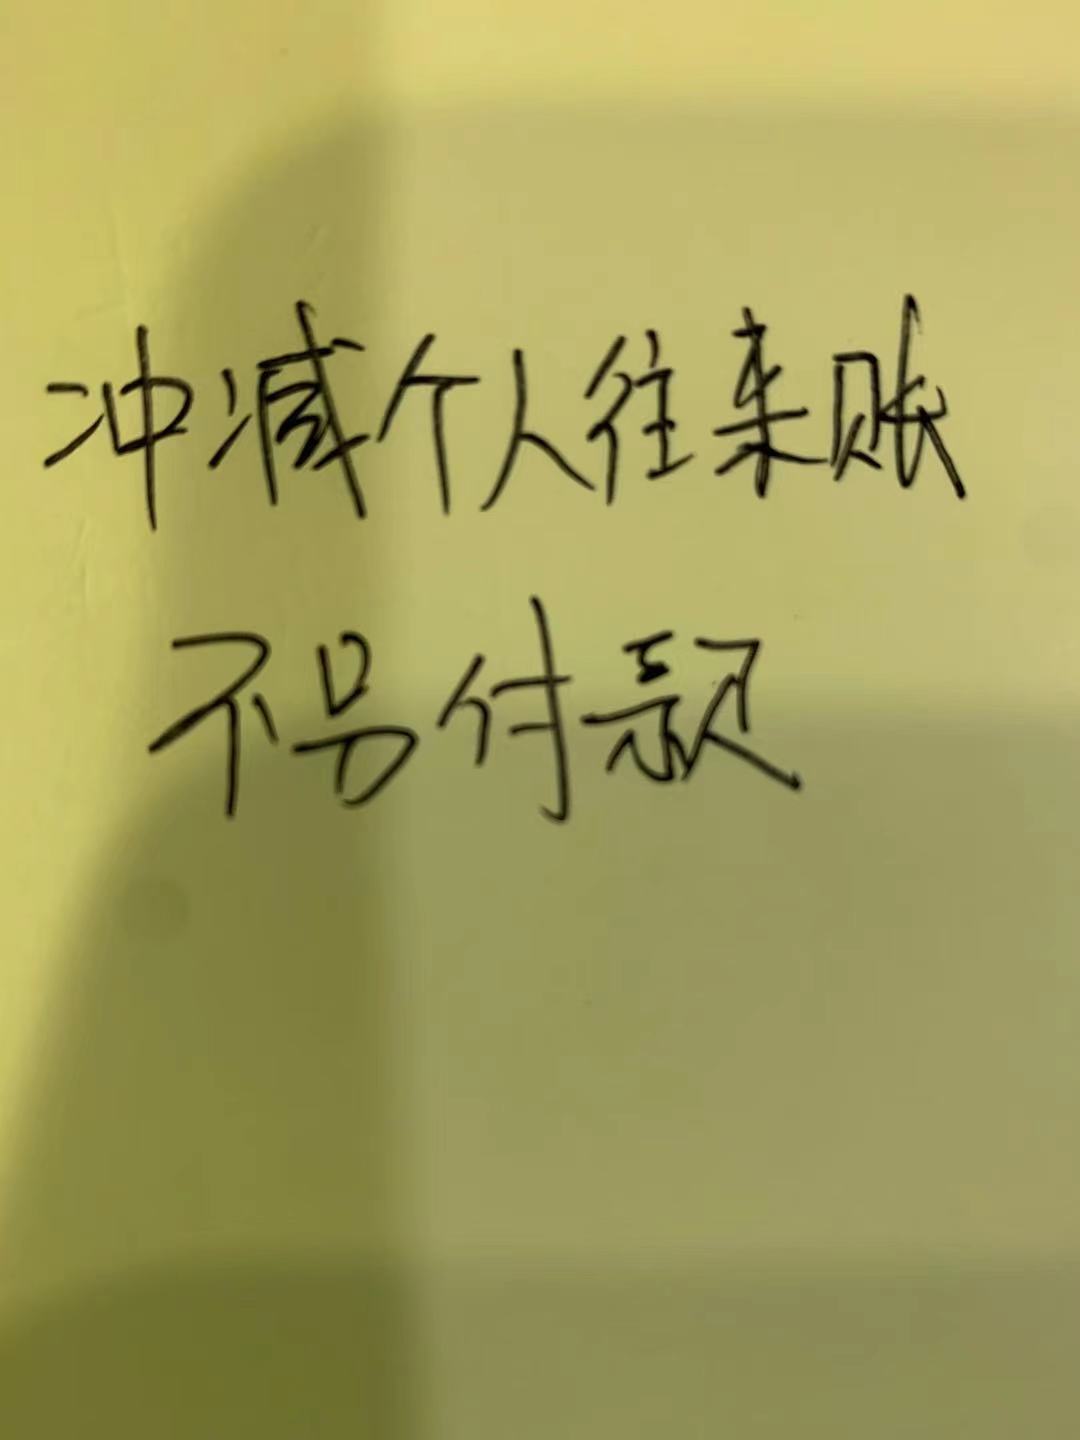 冲减个人往来账
不另付款